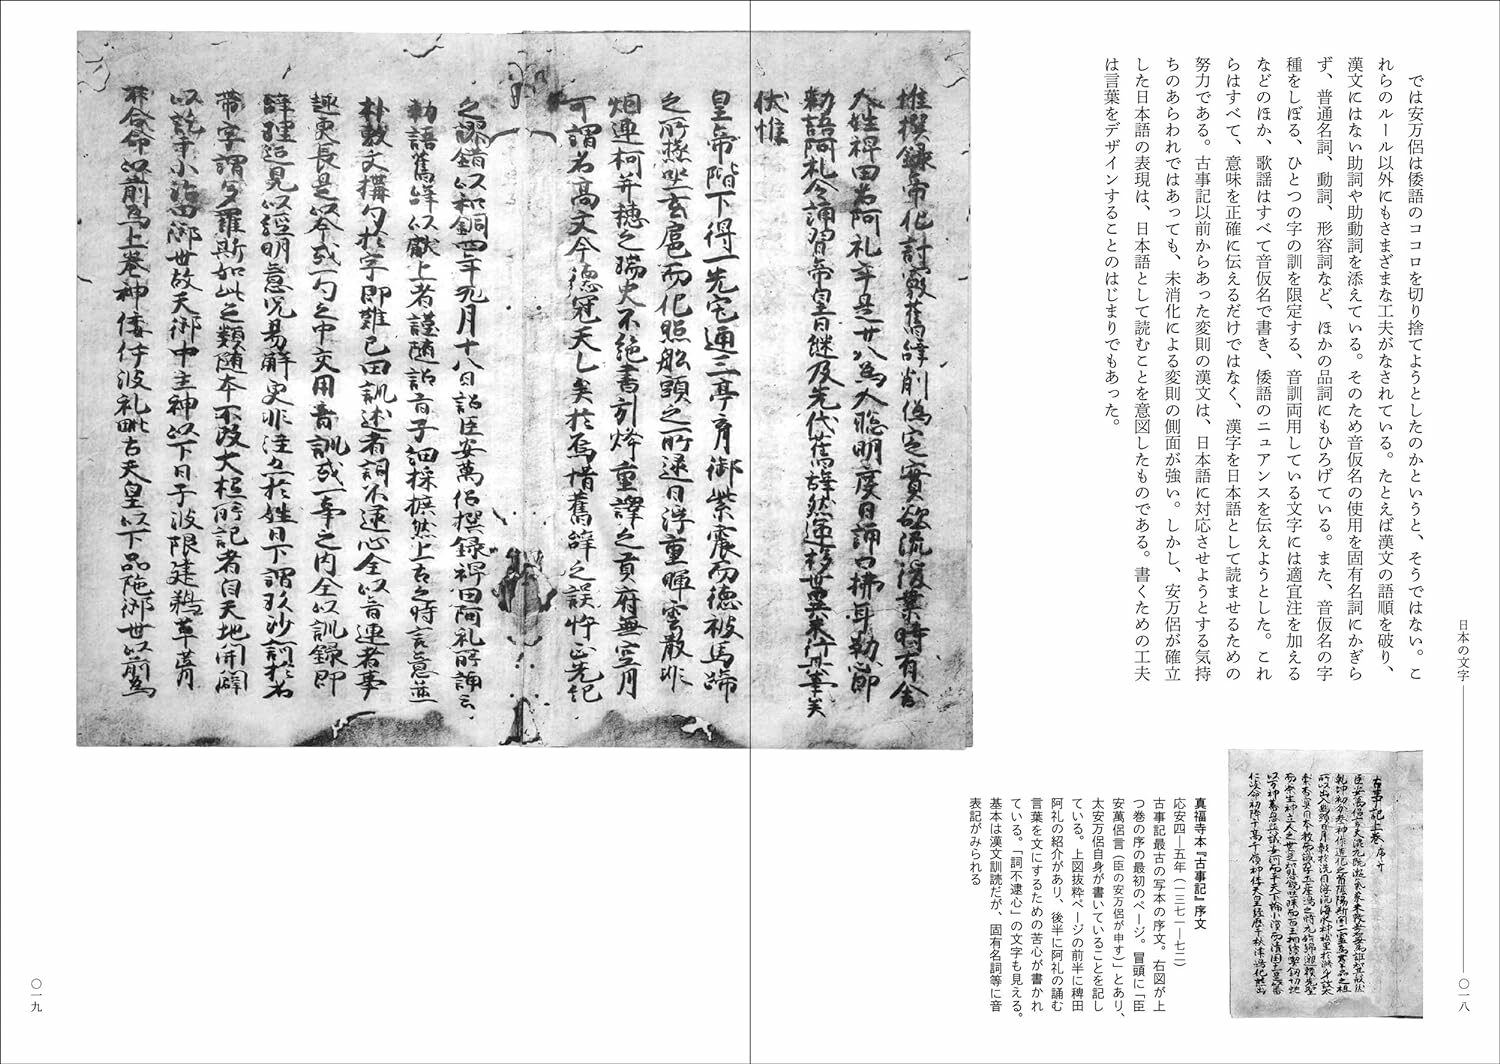 日本の文字
〇一八
では安万侶は倭語のココロを切り捨てようとしたのかというと、そうではない。こ
れらのルール以外にもさまざまな工夫がなされている。たとえば漢文の語順を破り、
漢文にはない助詞や助動詞を添えている。そのため音仮名の使用を固有名詞にかぎら
ず、普通名詞、動詞、形容詞など、ほかの品詞にもひろげている。また、音仮名の字
種をしぼる、ひとつの字の訓を限定する、音訓両用している文字には適宜注を加える
などのほか、歌謡はすべて音仮名で書き、倭語のニュアンスを伝えようとした。これ
らはすべて、意味を正確に伝えるだけではなく、漢字を日本語として読ませるための
努力である。古事記以前からあった変則の漢文は、日本語に対応させようとする気持
ちのあらわれではあっても、未消化による変則の側面が強い。しかし、安万侶が確立
した日本語の表現は、日本語として読むことを意図したものである。書くための工夫
は言葉をデザインすることのはじまりでもあった。
古事記上巻 序并
真福寺本『古事記』序文
応安四―五年（一三七一―七二）
古事記最古の写本の序文。右図が上
つ巻の序の最初のページ。冒頭に「臣
安萬侶言（臣の安万侶が申す）」とあり、
太安万侶自身が書いていることを記し
ている。上図抜粋ページの前半に稗田
阿礼の紹介があり、後半に阿礼の誦む
言葉を文にするための苦心が書かれ
ている。「詞不逮心」の文字も見える。
基本は漢文訓読だが、固有名詞等に音
表記がみられる
惟撰録帝化討覈舊辞削偽定實欲流後葉時有舎
人姓稗田名阿礼年是廿八為人聡明度目誦口拂耳勒心即
勅語阿礼令誦習帝皇日継及先代舊辞然運移世異未行其事矣
伏惟
皇帝陛下得一光宅通三亭育御紫震而徳被馬蹄
之所極坐玄扈而化照船頭之所逮日浮重暉雲散非
烟連柯并穂之瑞史不絶書列烽重譯之貢府無空月
可謂名高文命徳冠天乙矣於焉惜舊辞之誤忤正先紀
之謬錯以和銅四年九月十八日詔臣安萬侶撰録稗田阿礼所誦
勅語舊辞以獻上者謹随詔旨子細採摭然上古之時言意並
朴敷文構句於字即難已因訓述者詞不逮心全以音連者事
趣更長是以今或一句之中交用音訓或一事之内全以訓録即
辞理叵見以注明意况易解更非注亦於姓日下謂玖沙訶於名
帯字謂多羅斯如此之類随本不改大柤所記者自天地開闢
以訖于小治田御世故天御中主神以下日子波限建鵜草葺
不合命以前為上巻神倭伊波礼毗古天皇以下品陀御世以前為
〇一九